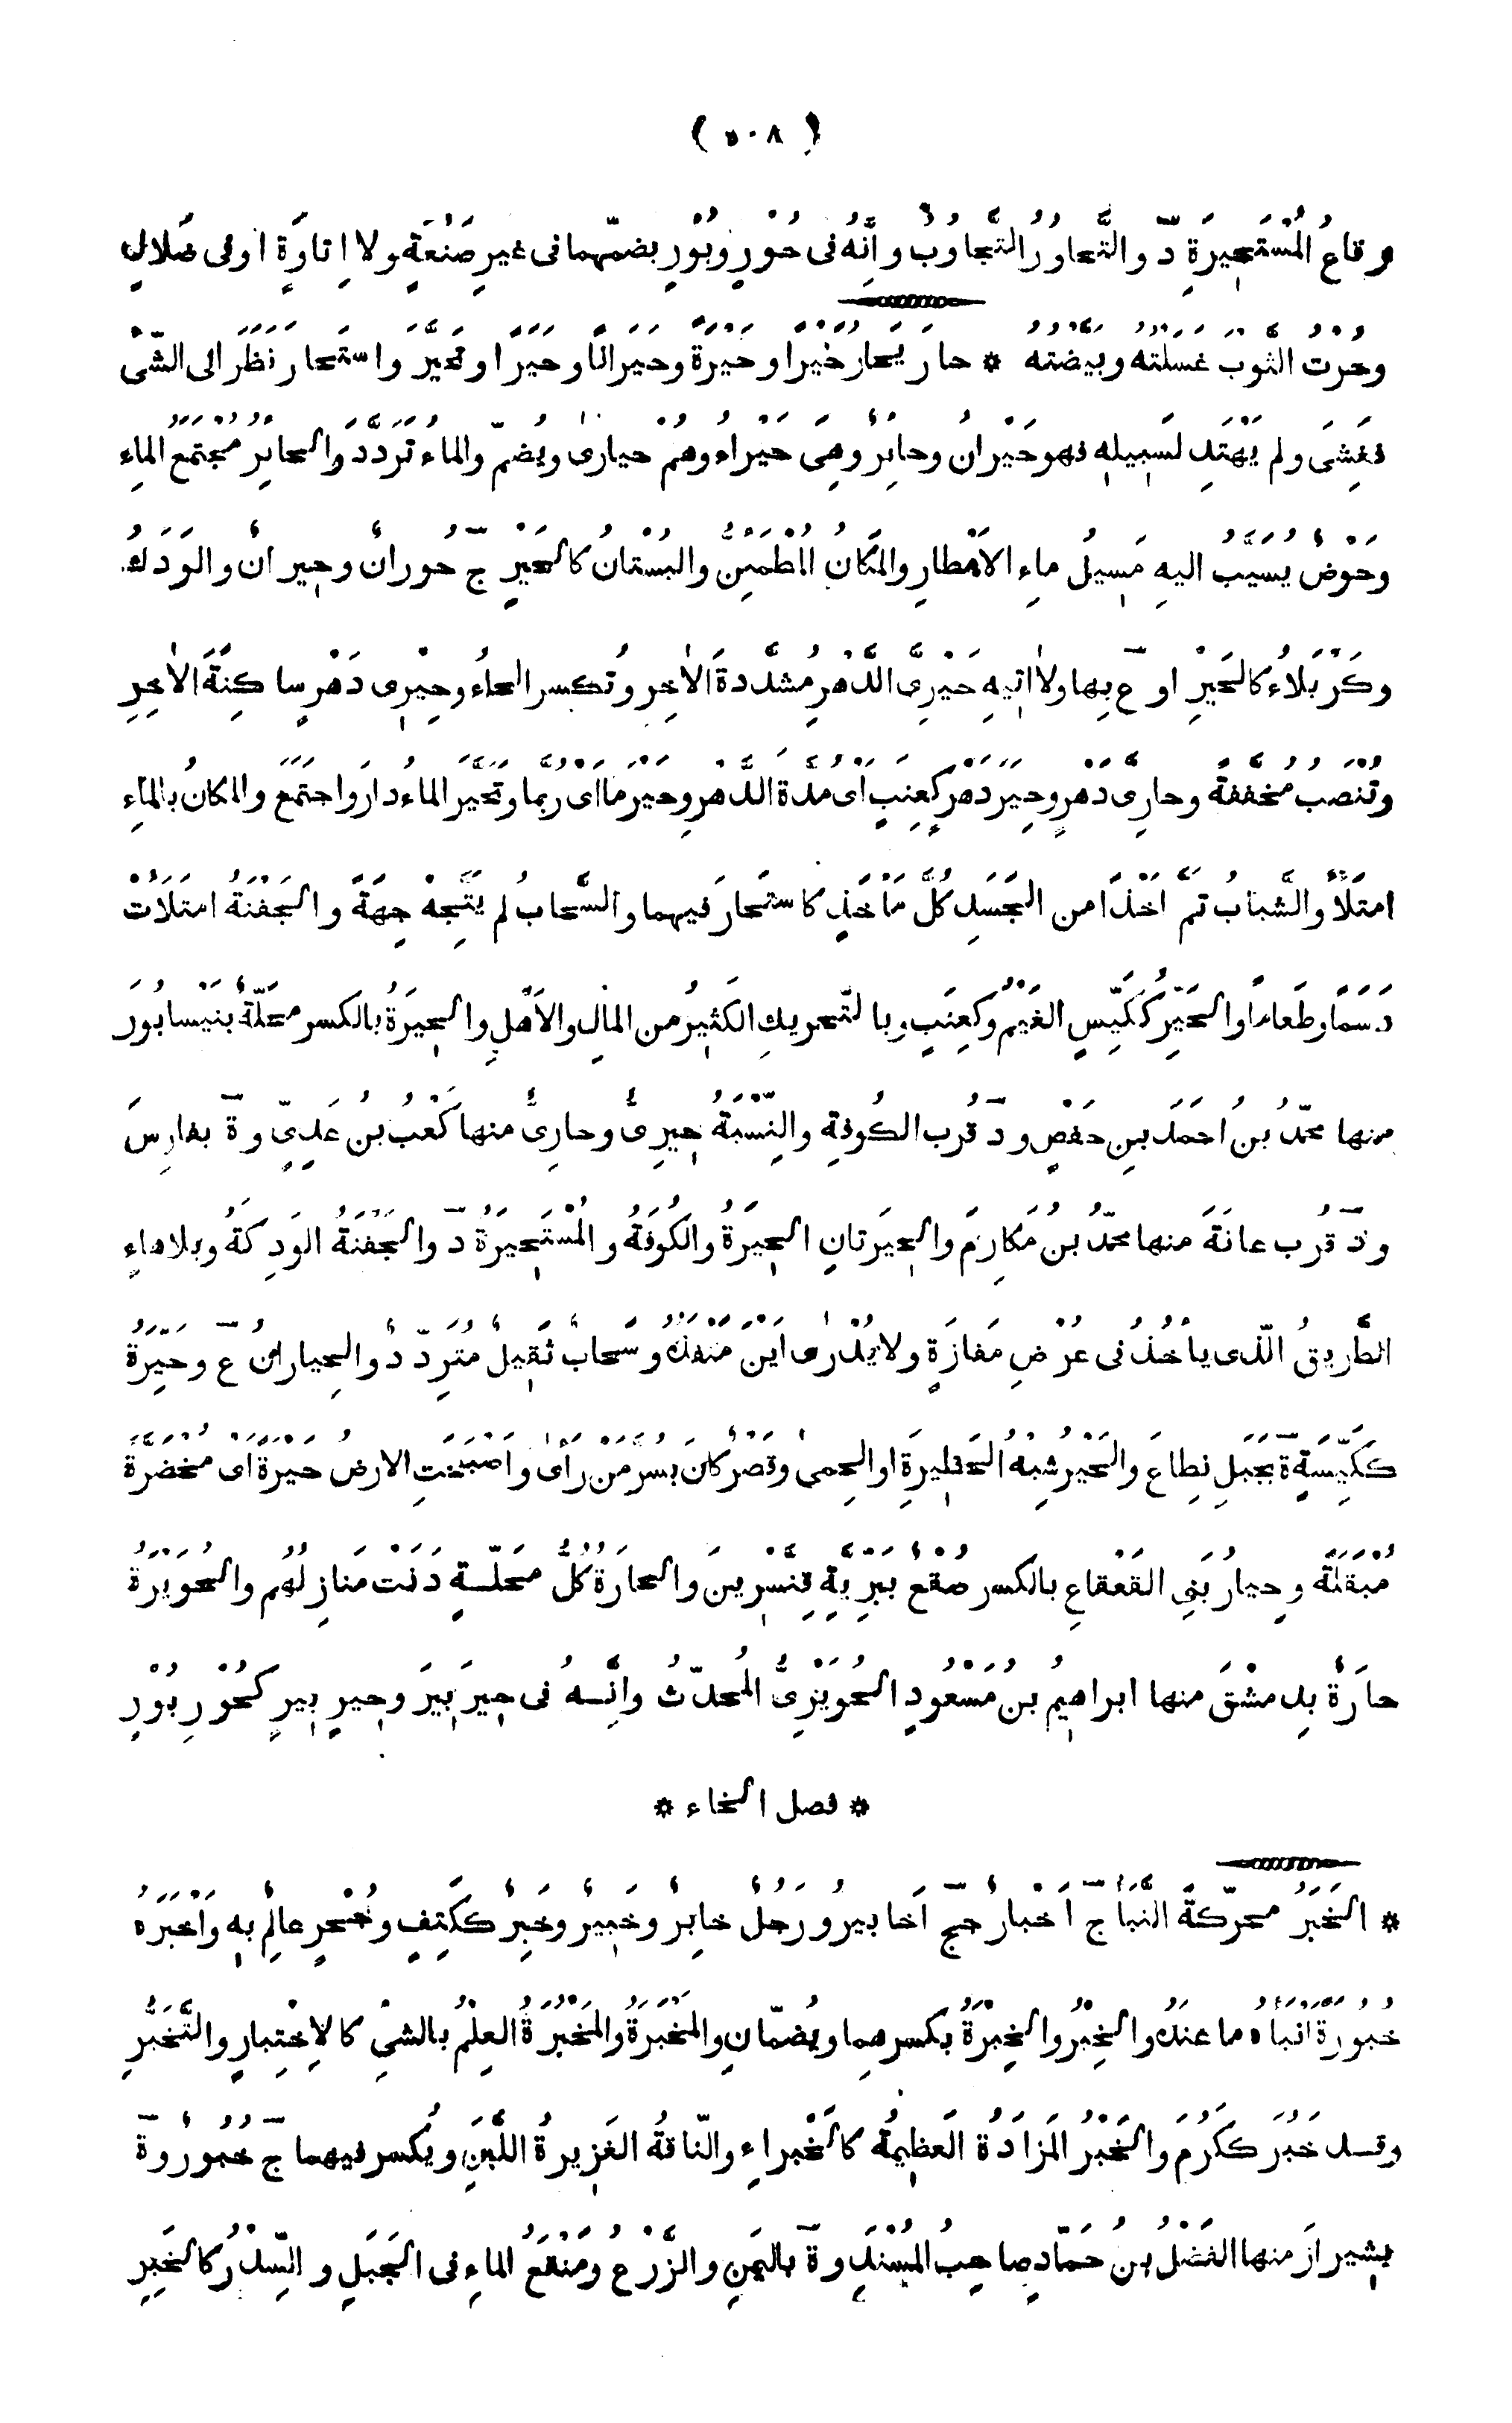 ( ٥٠٨ )
وقاعُ المُسْتَحِيرَةِ دّ والتَّحاوُرُ التَّجاوُبُ وإنَّهُ فى حُوْرٍ وبُوْرٍ بضمّهما فى غيرِ صَنْعَةٍ ولا إِتاوَةٍ أو فى ضَلالٍ
وحُرْتُ الثَّوْبَ غَسَلْتُه وبَيَّضْتُهُ * حارَ يَحارُ حَيْرًا وحَيْرَةً وحَيَرانًا وحَيَرًا وتَحَيَّرَ واستَحارَ نَظَرَ الى الشَّىْ
فغَشِىَ ولم يَهْتَدِ لسَبِيلِهِ فهو حَيْرانُ وحائِرٌ وهِىَ حَيْراءُ وهُمْ حيارىٰ ويُضمّ والماءُ تَرَدَّدَ والحائِرُ مُجْتَمَعُ الماءِ
وحَوْضٌ يُسَيَّبُ اليهِ مَسِيلُ ماءِ الأَمْطارِ والمَكانُ المُطْمَئِنُّ والبُسْتانُ كالحَيْرِ جّ حُورانٌ وحِيرانٌ والوَدَكُ
وكَرْبَلاءُ كالحَيْرِ أو عّ بِها ولا اٰتِيهِ حَيْرِىَّ الدَّهْرِ مُشَدَّدةَ الاٰخِرِ وتُكسر الحاءُ وحِيْرِى دَهْرٍ ساكِنَةَ الاٰخِرِ
وتُنْصَبُ مُخَفَّفةً وحارِىَّ دَهْرٍ وحِيَرَ دَهْرٍ كعِنَبٍ أى مُدَّةَ الدَّهْرِ وحَيْرَ ما أى رُبَّما وتَحَيَّرَ الماءُ دارَ واجتَمَعَ والمكانُ بالماءِ
امتَلَأَ والشَّبابُ تَمَّ آخِذًا من الجَسَدِ كُلَّ مَأْخَذٍ كاستَحارَ فيهما والسَّحابُ لم يَتَّجِهْ جِهَةً والجَفْنَةُ امتَلَأَتْ
دَسَمًا وطَعامًا والحَيِّرُ ككَيِّسٍ الغَيْمُ وكعِنَبٍ وبالتّحريكِ الكَثِيرُ من المالِ والأَهْلِ والحِيرَةُ بالكسر مَحَلّةٌ بنَيْسابُورَ
منها محمّدُ بنُ أحمَدَ بنِ حَفْصٍ ودّ قُرب الكُوفةِ والنِّسْبَةُ حِيرِىٌّ وحارِىٌّ منها كَعْبُ بنُ عَدِىٍّ وةّ بفارِسَ
ودّ قُرب عانَةَ منها محمّدُ بنُ مَكارِمَ والحِيرَتانِ الحِيرَةُ والكُوفَةُ والمُسْتَحِيرَةُ دّ والجَفْنَةُ الوَدِكَةُ وبلا هاءٍ
الطَّرِيقُ الّذى يأخُذُ فى عُرْضِ مَفازَةٍ ولا يُدْرىٰ أيْنَ مَنْفَذُهُ وسَحابٌ ثَقِيلٌ مُتَرَدِّدٌ والحِيارانِ عّ وحَيِّرَةُ
ككَيِّسَةٍ ةّ بجَبَلِ نِطاعَ والحَيْرُ شِبْهُ الحَظِيرَةِ أو الحِمىٰ وقَصْرٌ كانَ بسُرَّ مَنْ رَأىٰ وأصْبَحَتِ الارضُ حَيْرَةً أى مُخْضَرَّةً
مُبْقِلَةً وحِيارُ بَنِى القَعْقاعِ بالكسر صُقْعٌ بَبَرِّيَّةِ قِنَّسْرِينَ والحارَةُ كُلُّ مَحَلّةٍ دَنَتْ مَنازِلُهُم والحُوَيْرَةُ
حارَةٌ بِدِمشْقَ منها ابراهِيمُ بنُ مَسْعُودٍ الحُوَيْرِىُّ المُحدّثُ وإنَّهُ فى حِيرَ بِيرَ وحِيرٍ بِيرٍ كحُوْرٍ بُوْرٍ
* فصل الخاء *
* الخَبَرُ محرّكةً النَّبَأُ جّ أخْبارٌ ججّ أخابيرُ ورجلٌ خابِرٌ وخَبِيرٌ وخَبِرٌ ككَتِفٍ وجُحْرٍ عالِمٌ بهِ وأخْبَرَهُ
خُبُورَهُ أنْبَأهُ ما عندَهُ والخِبْرُ والخِبْرَةُ بكسرهِما ويُضمّانِ والمَخْبَرَةُ والمَخْبُرَةُ العِلْمُ بالشىْ كالاِخْتِبارِ والتَّخَبُّرِ
وقد خَبُرَ ككَرُمَ والخَبْرُ المَزادَةُ العَظِيمَةُ كالخَبْراءِ والنّاقةُ الغَزِيرةُ اللَّبَنِ ويُكسر فيهما جّ خُبُورٌ وةّ
بشِيرازَ منها الفَضْلُ بنُ حَمّادٍ صاحِبُ المُسْنَدِ وةّ باليَمَنِ والزَّرْعُ ومَنْقَعُ الماءِ فى الجَبَلِ والسِّدْرُ كالخَبِرِ